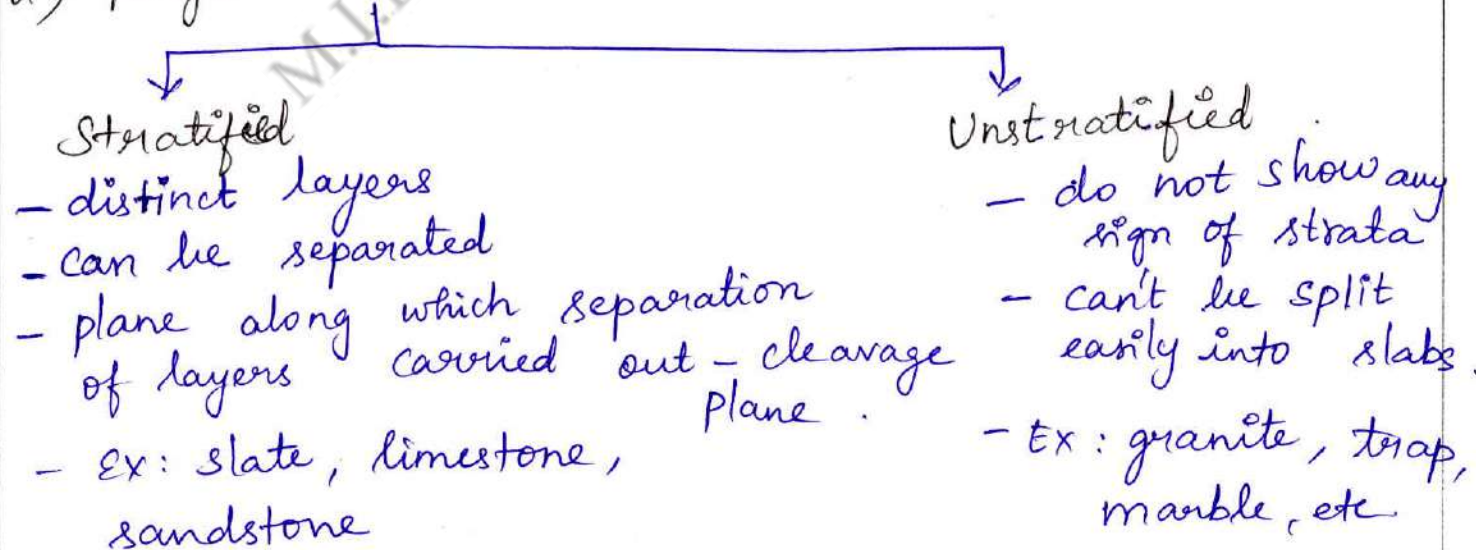 Stratified
- distinct layers
- can be separated
- plane along which separation
of layers carried out - cleavage
Plane.
- Ex: slate, limestone,
sandstone
Unstratified.
- do not show any
sign of strata
- can't be split
easily into slabs.
- Ex: granite, trap,
marble, etc.